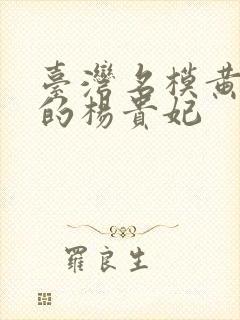 臺灣名模黄
的楊貴妃
羅良生